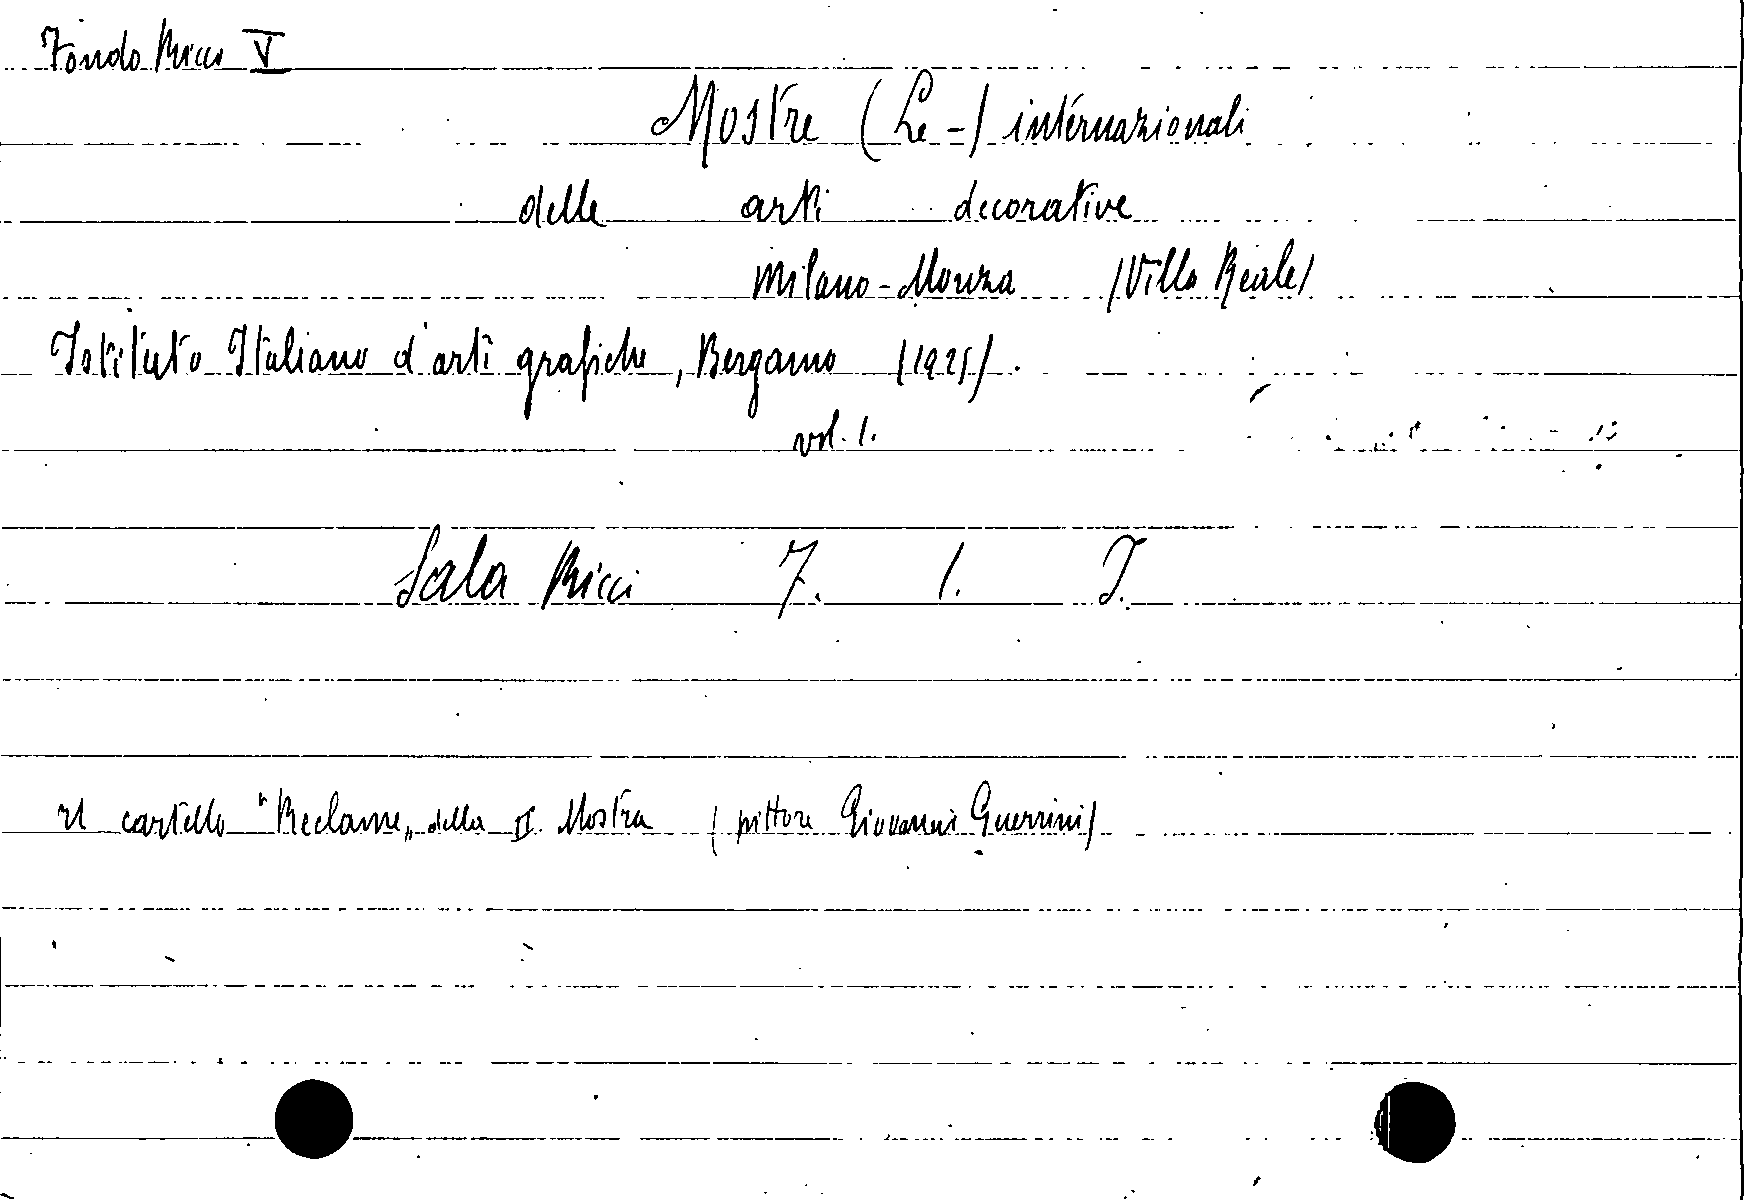 Fondo Ricci V
Mostre (Le-) internazionali
delle arti decorative
Milano-Monza (Villa Reale)
Istituto Italiano d'arti grafiche, Bergamo (1925).
vol. 1.
Sala Ricci 7. 1. I.
Il cartello "Reclame„ della II Mostra (pittore Giovanni Guerrini)